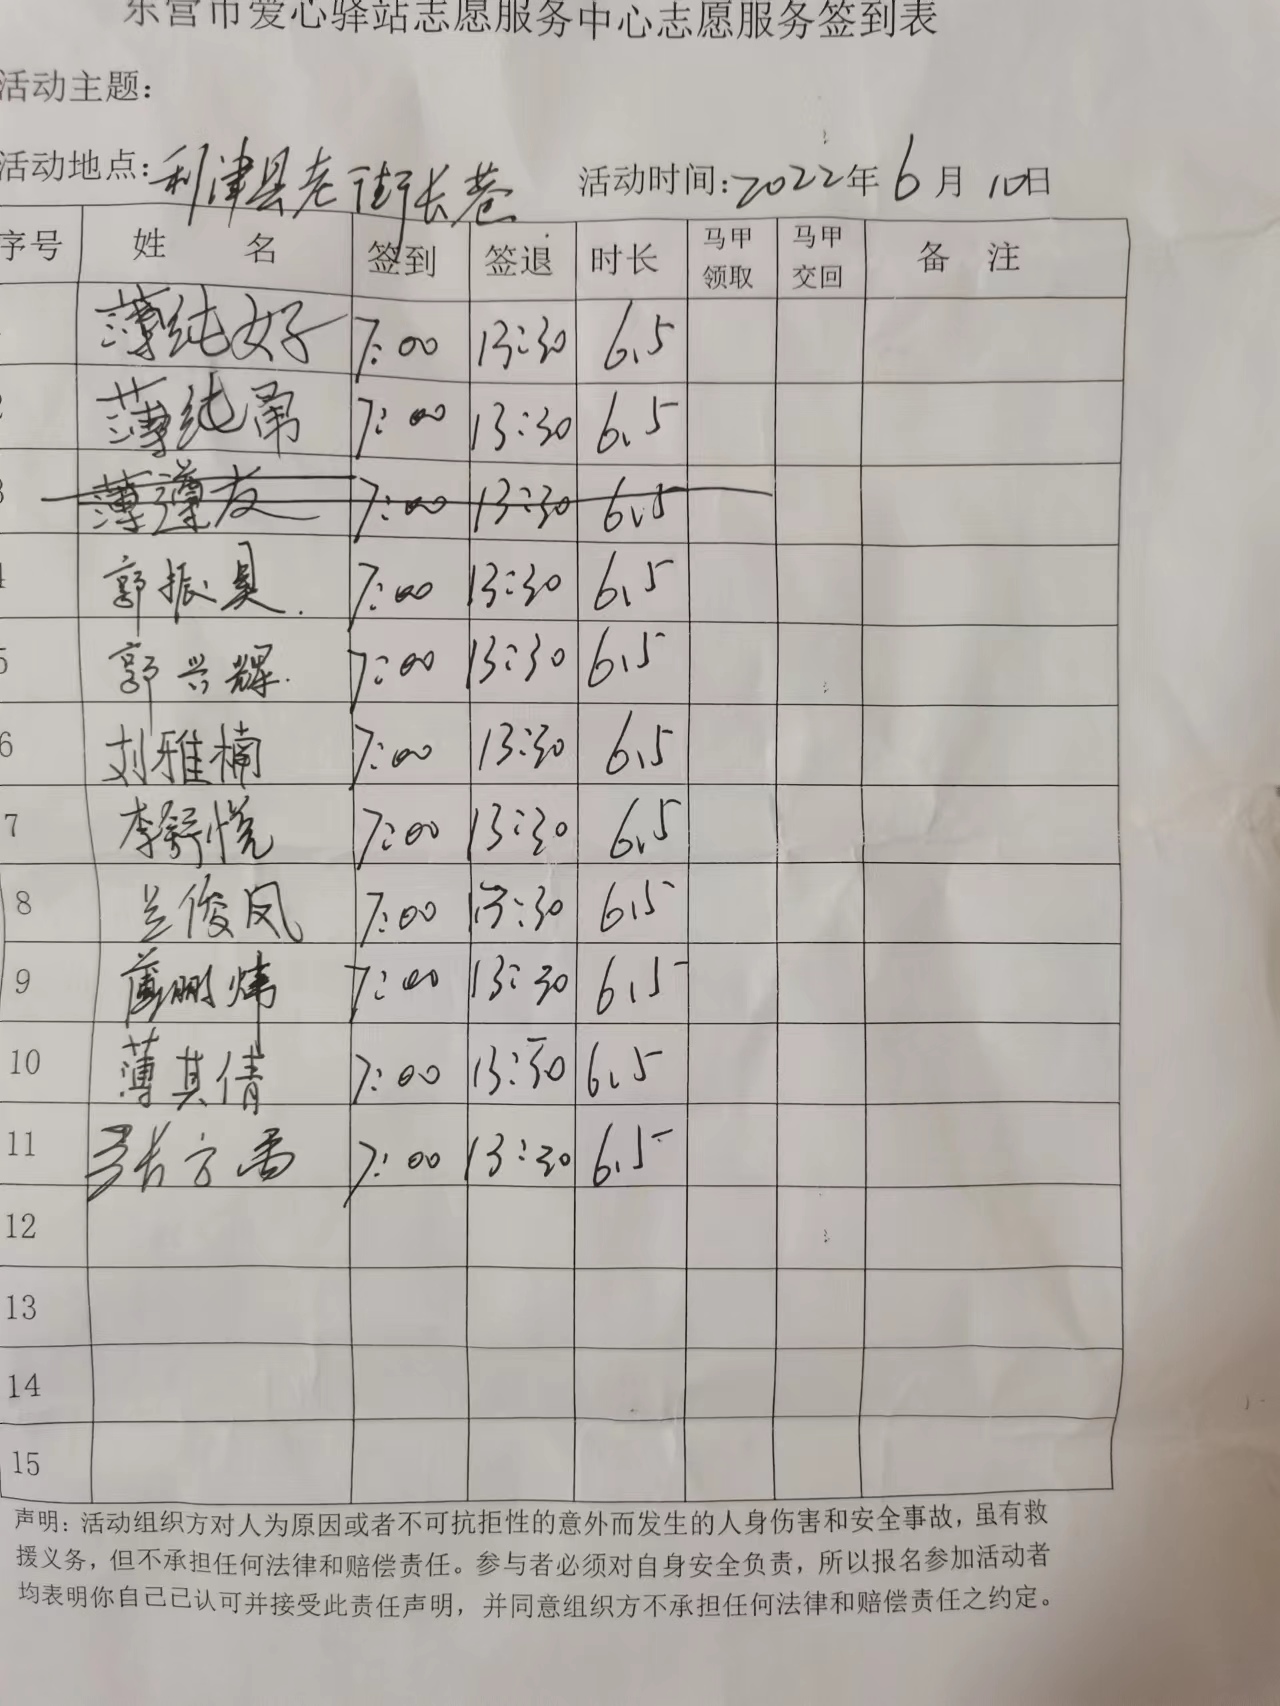 东营市爱心驿站志愿服务中心志愿服务签到表
活动主题：
活动地点：利津县老街长巷 活动时间：2022年6月10日
序号 姓 名 签到 签退 时长 马甲领取 马甲交回 备 注
薄纯好 7:00 13:30 6.5
2 薄纯 7:00 13:30 6.5
3 薄遵友 7:00 13:30 6.5
4 郭振 7:00 13:30 6.5
5 郭兴辉 7:00 13:30 6.5
6 刘雅楠 7:00 13:30 6.5
7 李舒悦 7:00 13:30 6.5
8 兰俊凤 7:00 13:30 6.5
9 7:00 13:30 6.5
10 薄其倩 7:00 13:30 6.5
11 7:00 13:30 6.5
12
13
14
15
声明：活动组织方对人为原因或者不可抗拒性的意外而发生的人身伤害和安全事故，虽有救
援义务，但不承担任何法律和赔偿责任。参与者必须对自身安全负责，所以报名参加活动者
均表明你自己已认可并接受此责任声明，并同意组织方不承担任何法律和赔偿责任之约定。